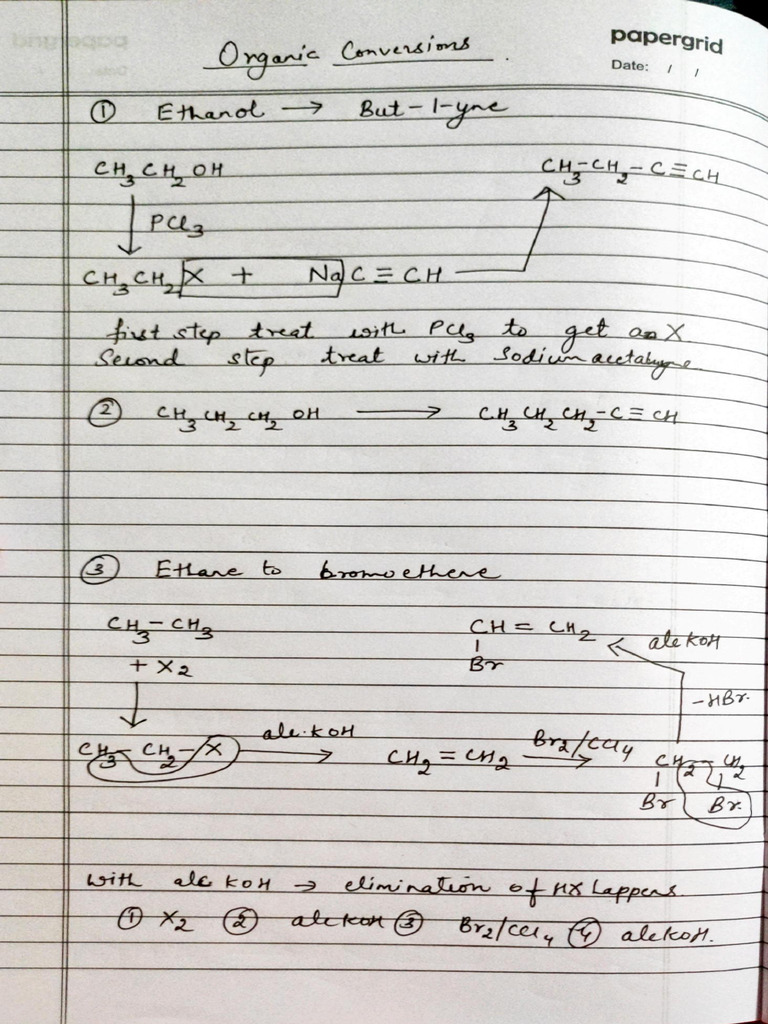 Organic Conversions.
papergrid
Date: / /
① Ethanol → But-1-yne
CH3CH2OH
CH3-CH2-C≡CH
↓ PCl3
CH3CH2X + NaC≡CH
first step treat with PCl3 to get an X
Second step treat with Sodium
② CH3CH2CH2OH → CH3CH2CH2-C≡CH
③ Ethane to bromoethene
CH3-CH3
CH=CH2
alc KOH
+ X2
Br
-HBr.
CH3-CH2-X alc.KOH → CH2=CH2 Br2/CCl4 → CH2-CH2
Br Br
with alc KOH → elimination of HX happens.
① X2 ② alc KOH ③ Br2/CCl4 ④ alc KOH.